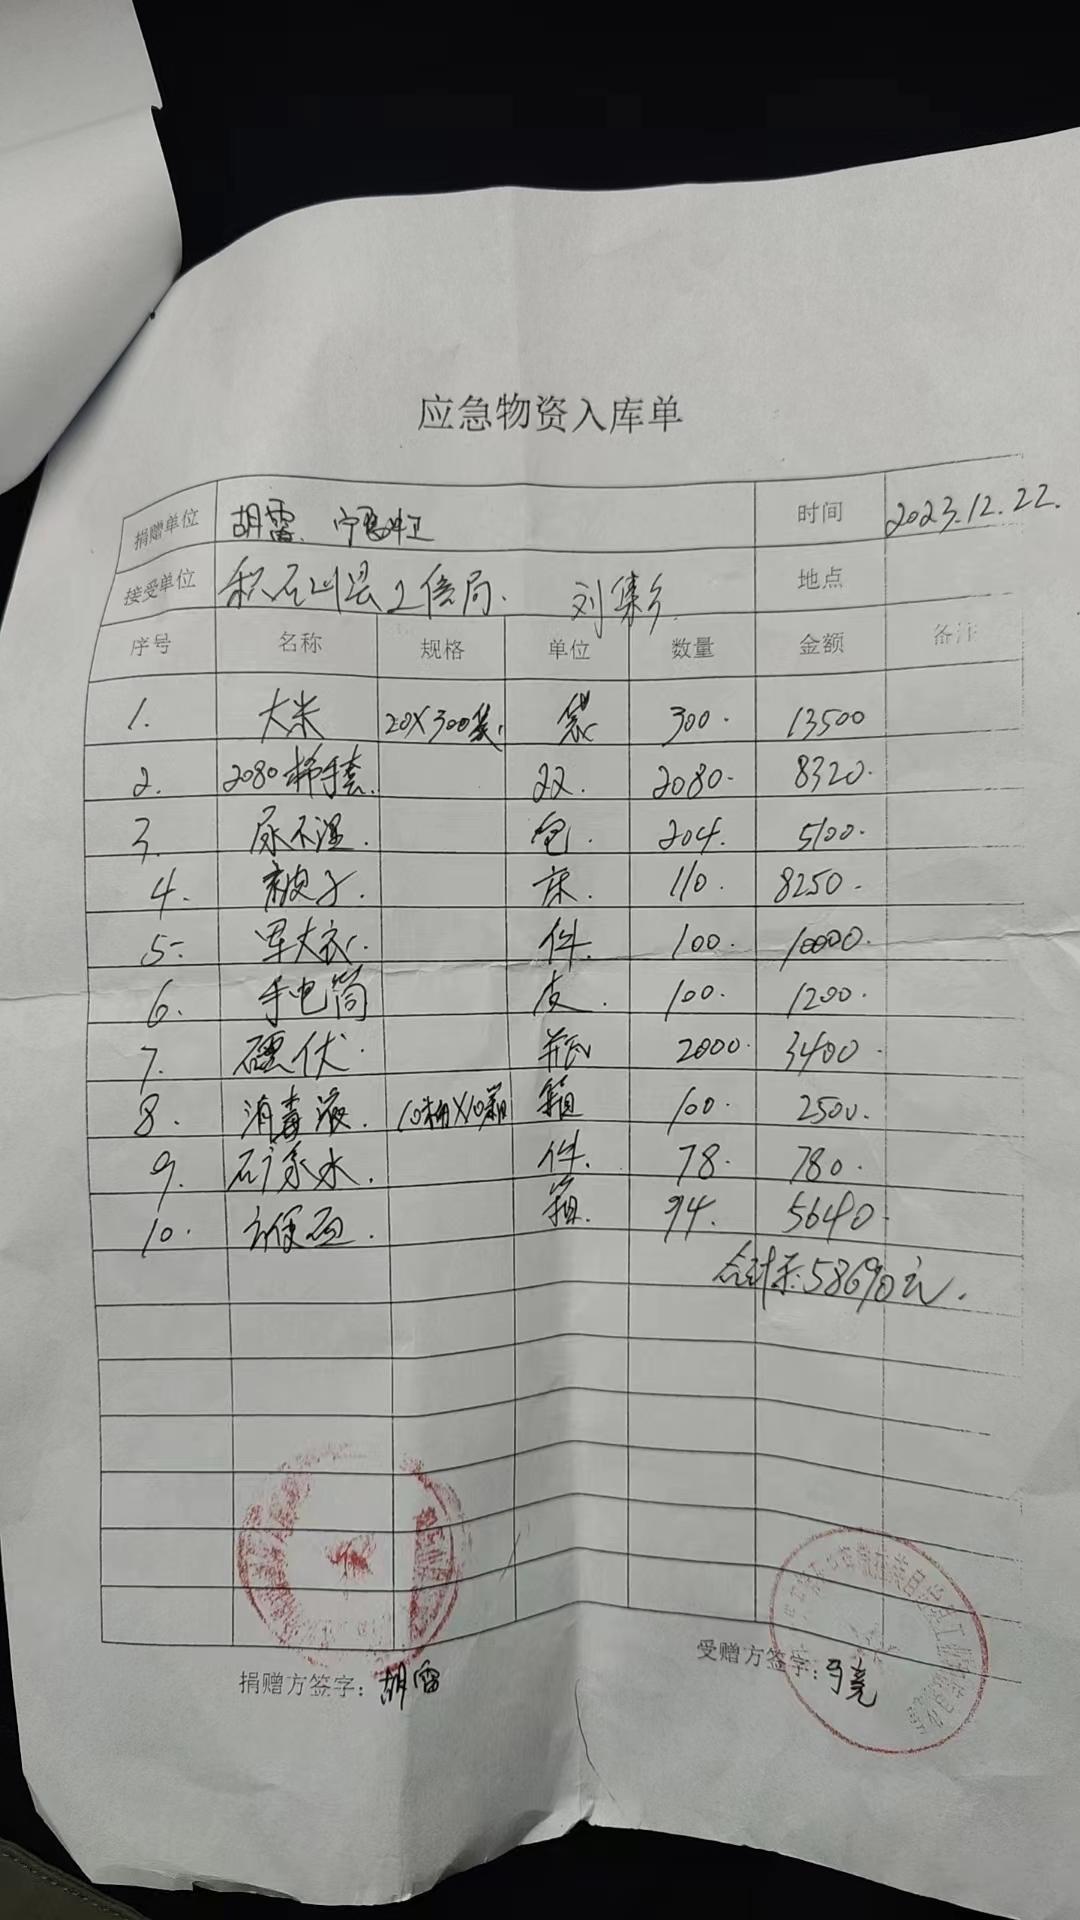 应急物资入库单
捐赠单位 胡雷 宁夏中卫 时间 2023.12.22.
接受单位 积石山县工信局. 刘集乡 地点
序号 名称 规格 单位 数量 金额 备注
1. 大米 20X300袋. 袋 300. 13500
2. 2080棉手套. 双. 2080. 8320.
3. 尿不湿. 包. 204. 5100.
4. 被子. 床. 110. 8250.
5. 军大衣. 件. 100. 10000.
6. 手电筒 皮. 100. 1200.
7. 碘伏. 瓶 2000. 3400.
8. 消毒液. 10箱X10箱 箱 100. 2500.
9. 矿泉水. 件. 78. 780.
10. 方便面. 箱. 94. 5640.
合计: 58690元.
捐赠方签字: 胡雷
受赠方签字: